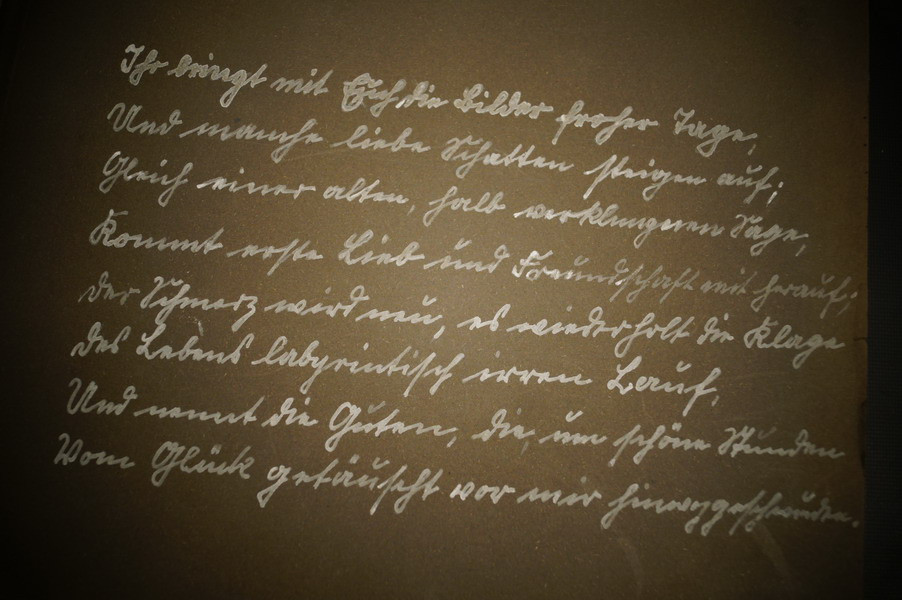 Ihr bringt mit Euch die Bilder froher Tage,
Und manche liebe Schatten steigen auf;
Gleich einer alten, halb verklungnen Sage,
Kommt erste Lieb und Freundschaft mit herauf;
der Schmerz wird neu, es wiederholt die Klage
des Lebens labyrintisch irren Lauf,
Und nennt die Guten, die, um schöne Stunden
Vom Glück getäuscht vor mir hinweggeschwunden.